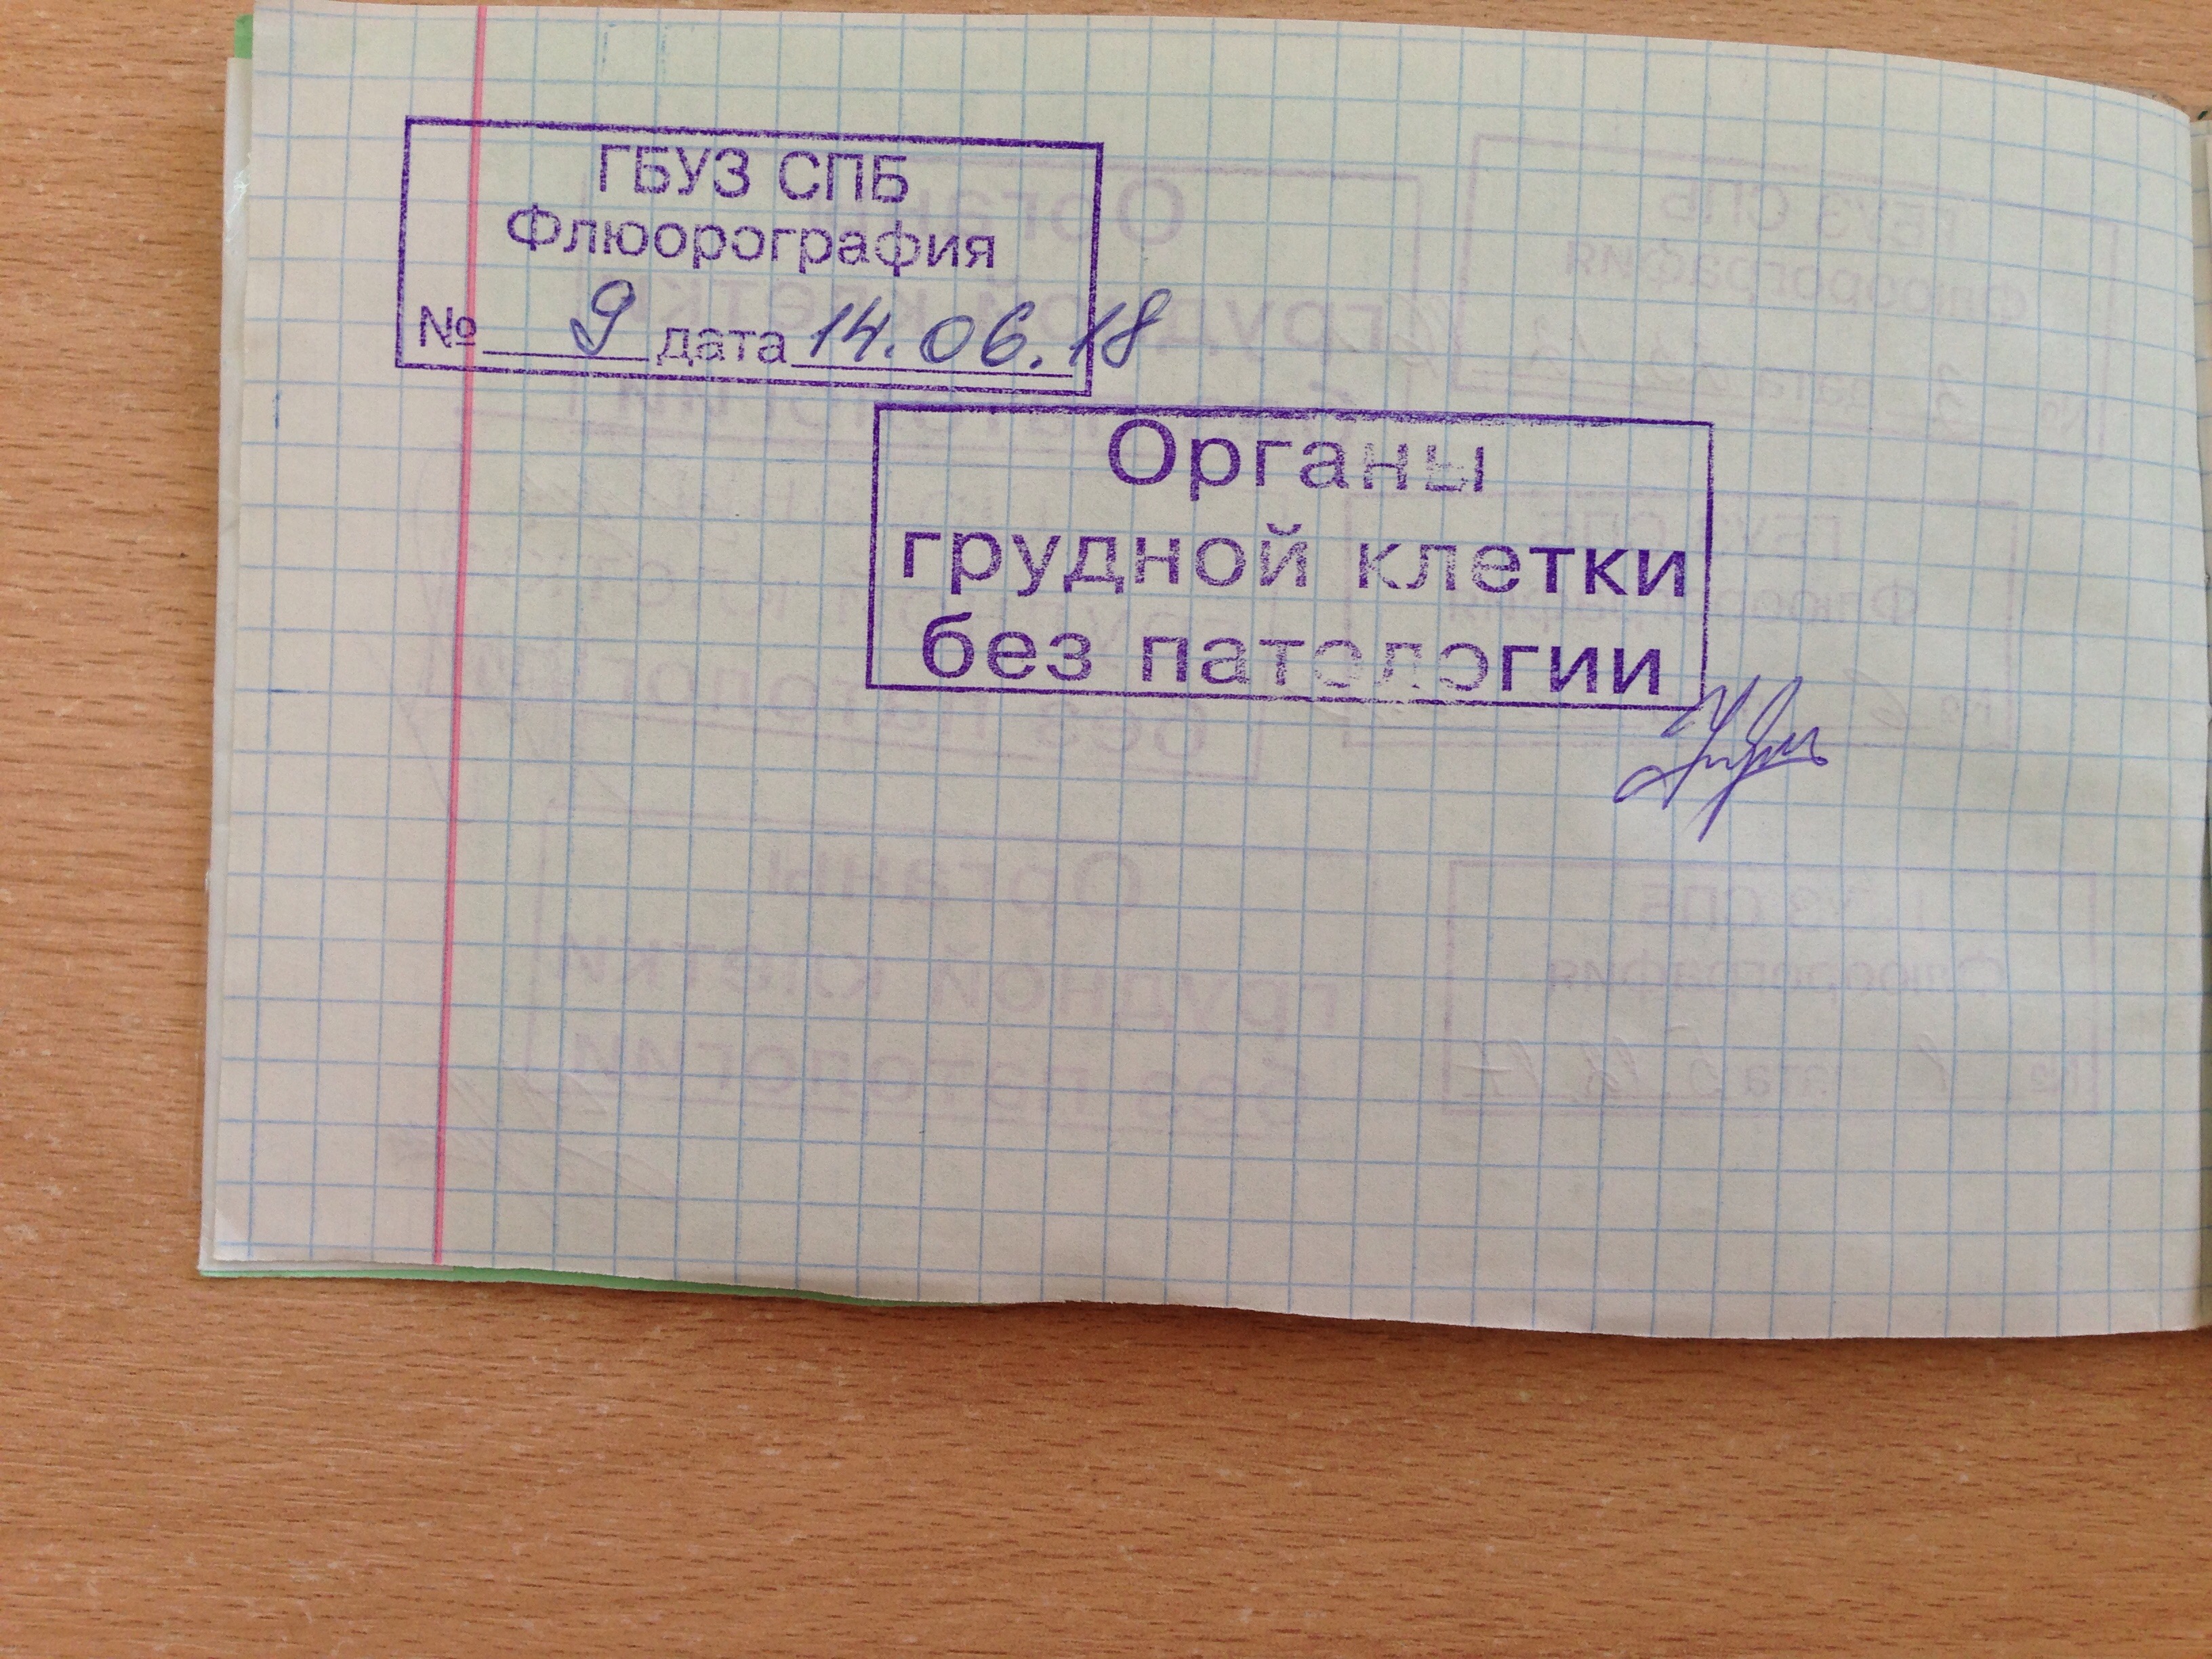 ГБУЗ СПБ
Флюорография
№ 9 дата 14.06.18
Органы
грудной клетки
без патологии